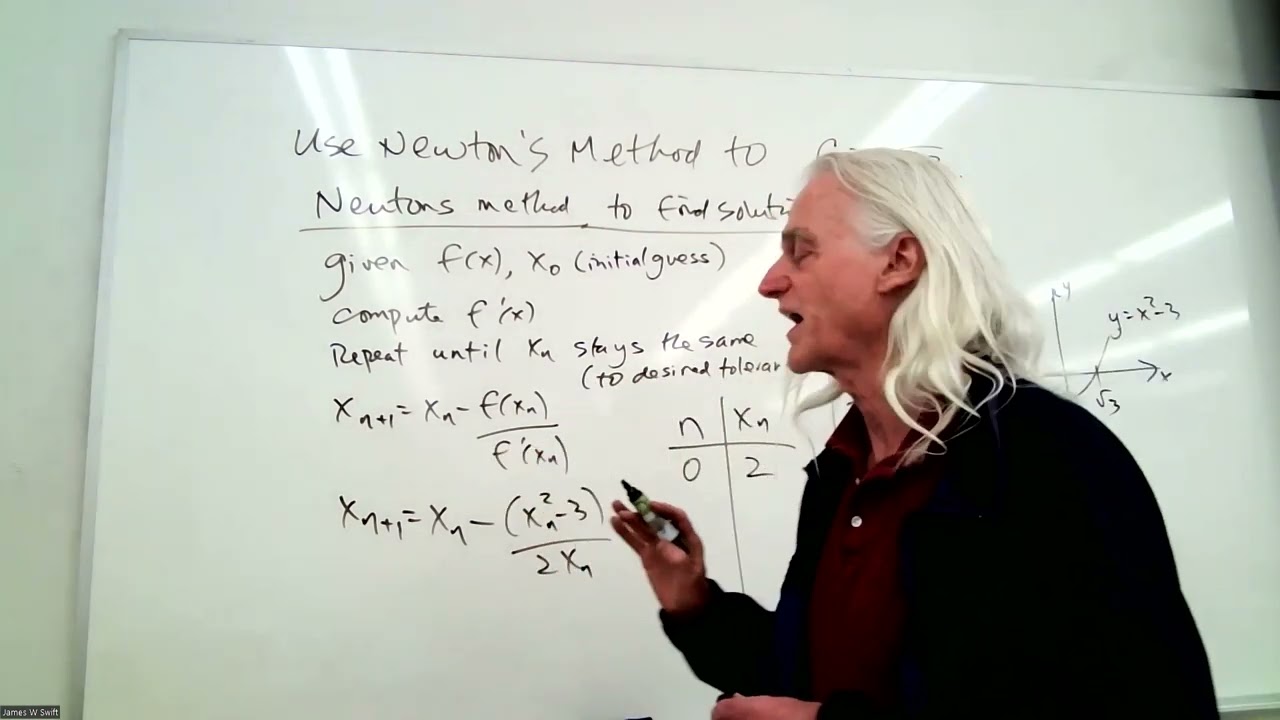 Use Newton's Method to
Newtons method to find
given f(x), x₀ (initial guess)
compute f'(x)
Repeat until xₙ stays the same
(to desired
xₙ₊₁ = xₙ - f(xₙ)
f'(xₙ)
xₙ₊₁ = xₙ - (xₙ² - 3)
2xₙ
n xₙ
0 2
y
y = x² - 3
x
√3
James W Swift